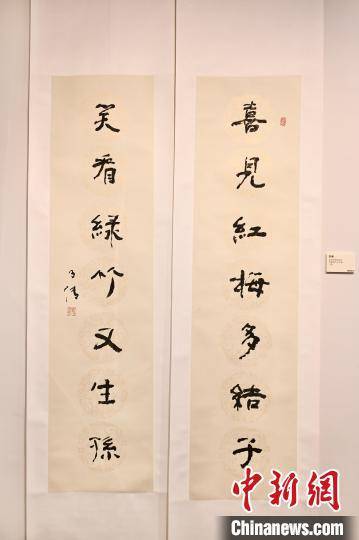 喜見紅梅多結子
笑看綠竹又生孫
中新網
Chinanews.com